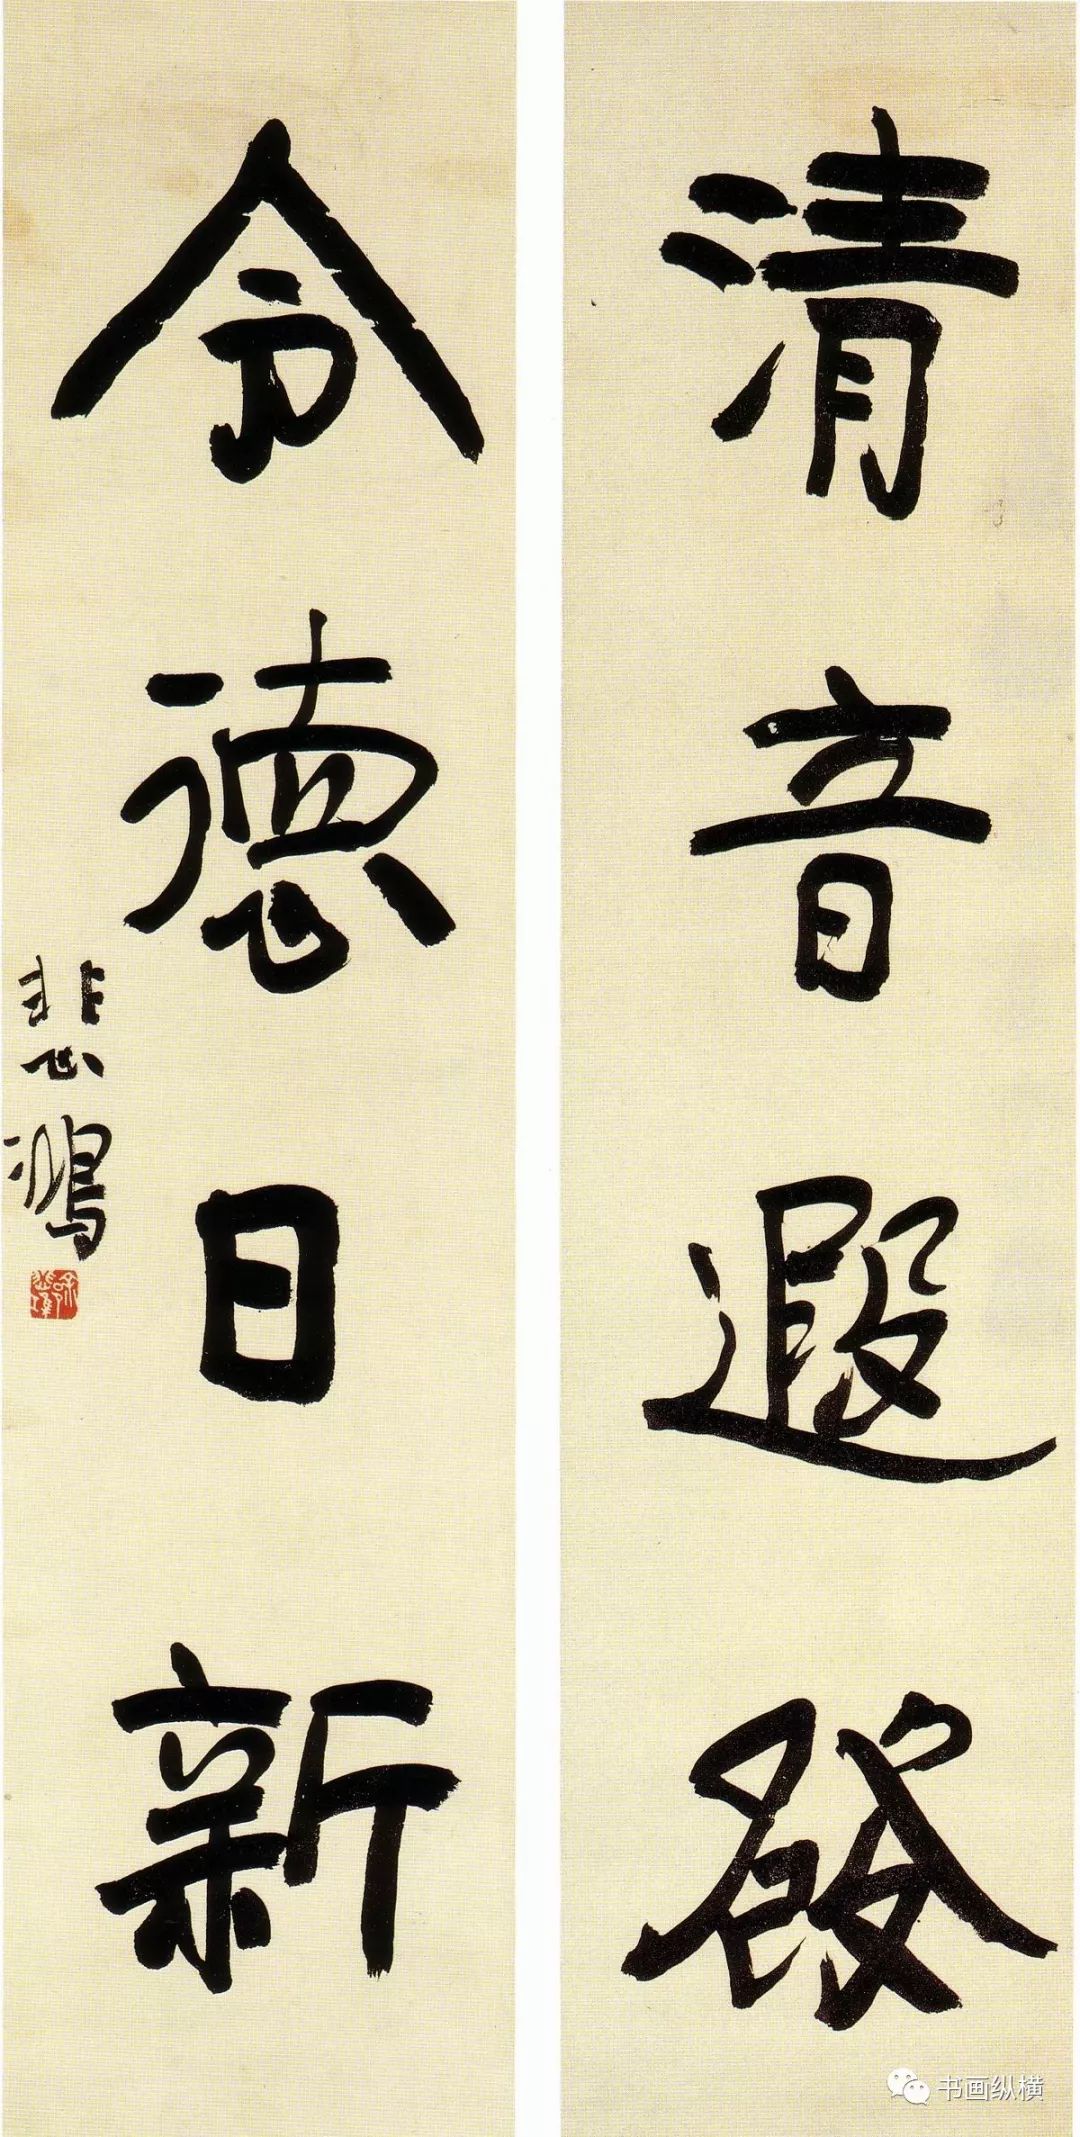 清音遐發
令德日新
悲鴻
书画纵横